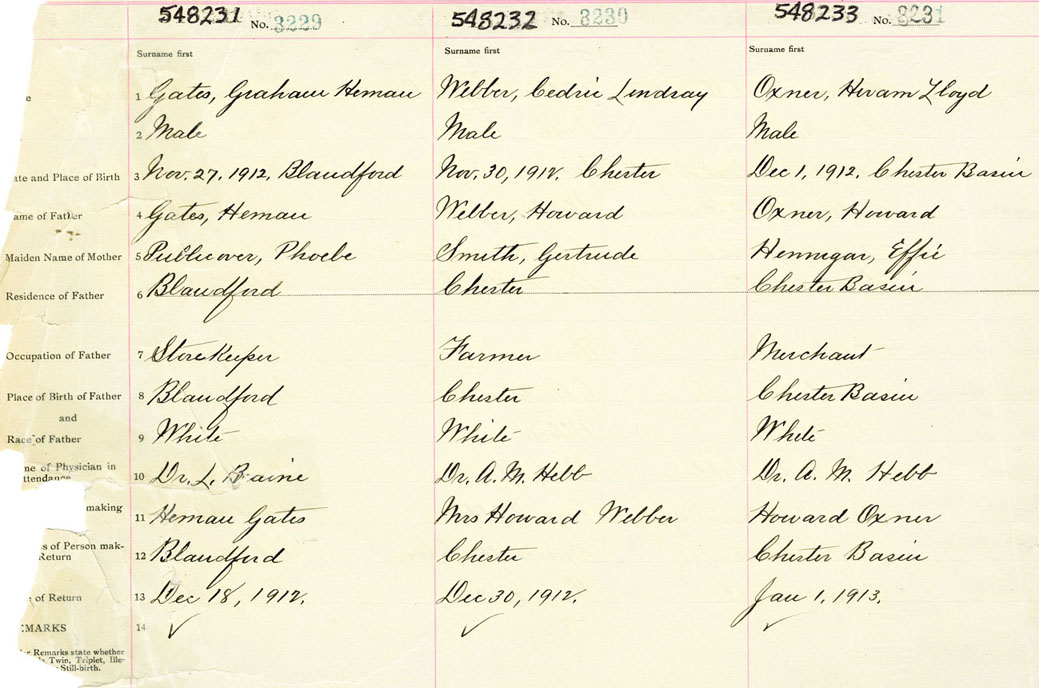 548231 No. 3229 548232 No. 3230 548233 No. 3231
Surname first Surname first Surname first
e 1 Gates, Graham Heman Webber, Cedric Lindsay Oxner, Hiram Lloyd
2 Male Male Male
ate and Place of Birth 3 Nov. 27, 1912, Blandford Nov. 30, 1912. Chester Dec 1, 1912. Chester Basin
ame of Father 4 Gates, Heman Webber, Howard Oxner, Howard
Maiden Name of Mother 5 Publicover, Phoebe Smith, Gertrude Hennigar, Effie
Residence of Father 6 Blandford Chester Chester Basin
Occupation of Father 7 Store Keeper Farmer Merchant
Place of Birth of Father 8 Blandford Chester Chester Basin
and
Race of Father 9 White White White
ne of Physician in
ttendance 10 Dr. L. Baine Dr. A. M. Hebb Dr. A. M. Hebb
making
11 Heman Gates Mrs Howard Webber Howard Oxner
s of Person mak-
Return 12 Blandford Chester Chester Basin
of Return 13 Dec 18, 1912. Dec 30, 1912. Jan 1. 1913.
EMARKS 14
r Remarks state whether
is Twin, Triplet, Ille-
Still-birth.